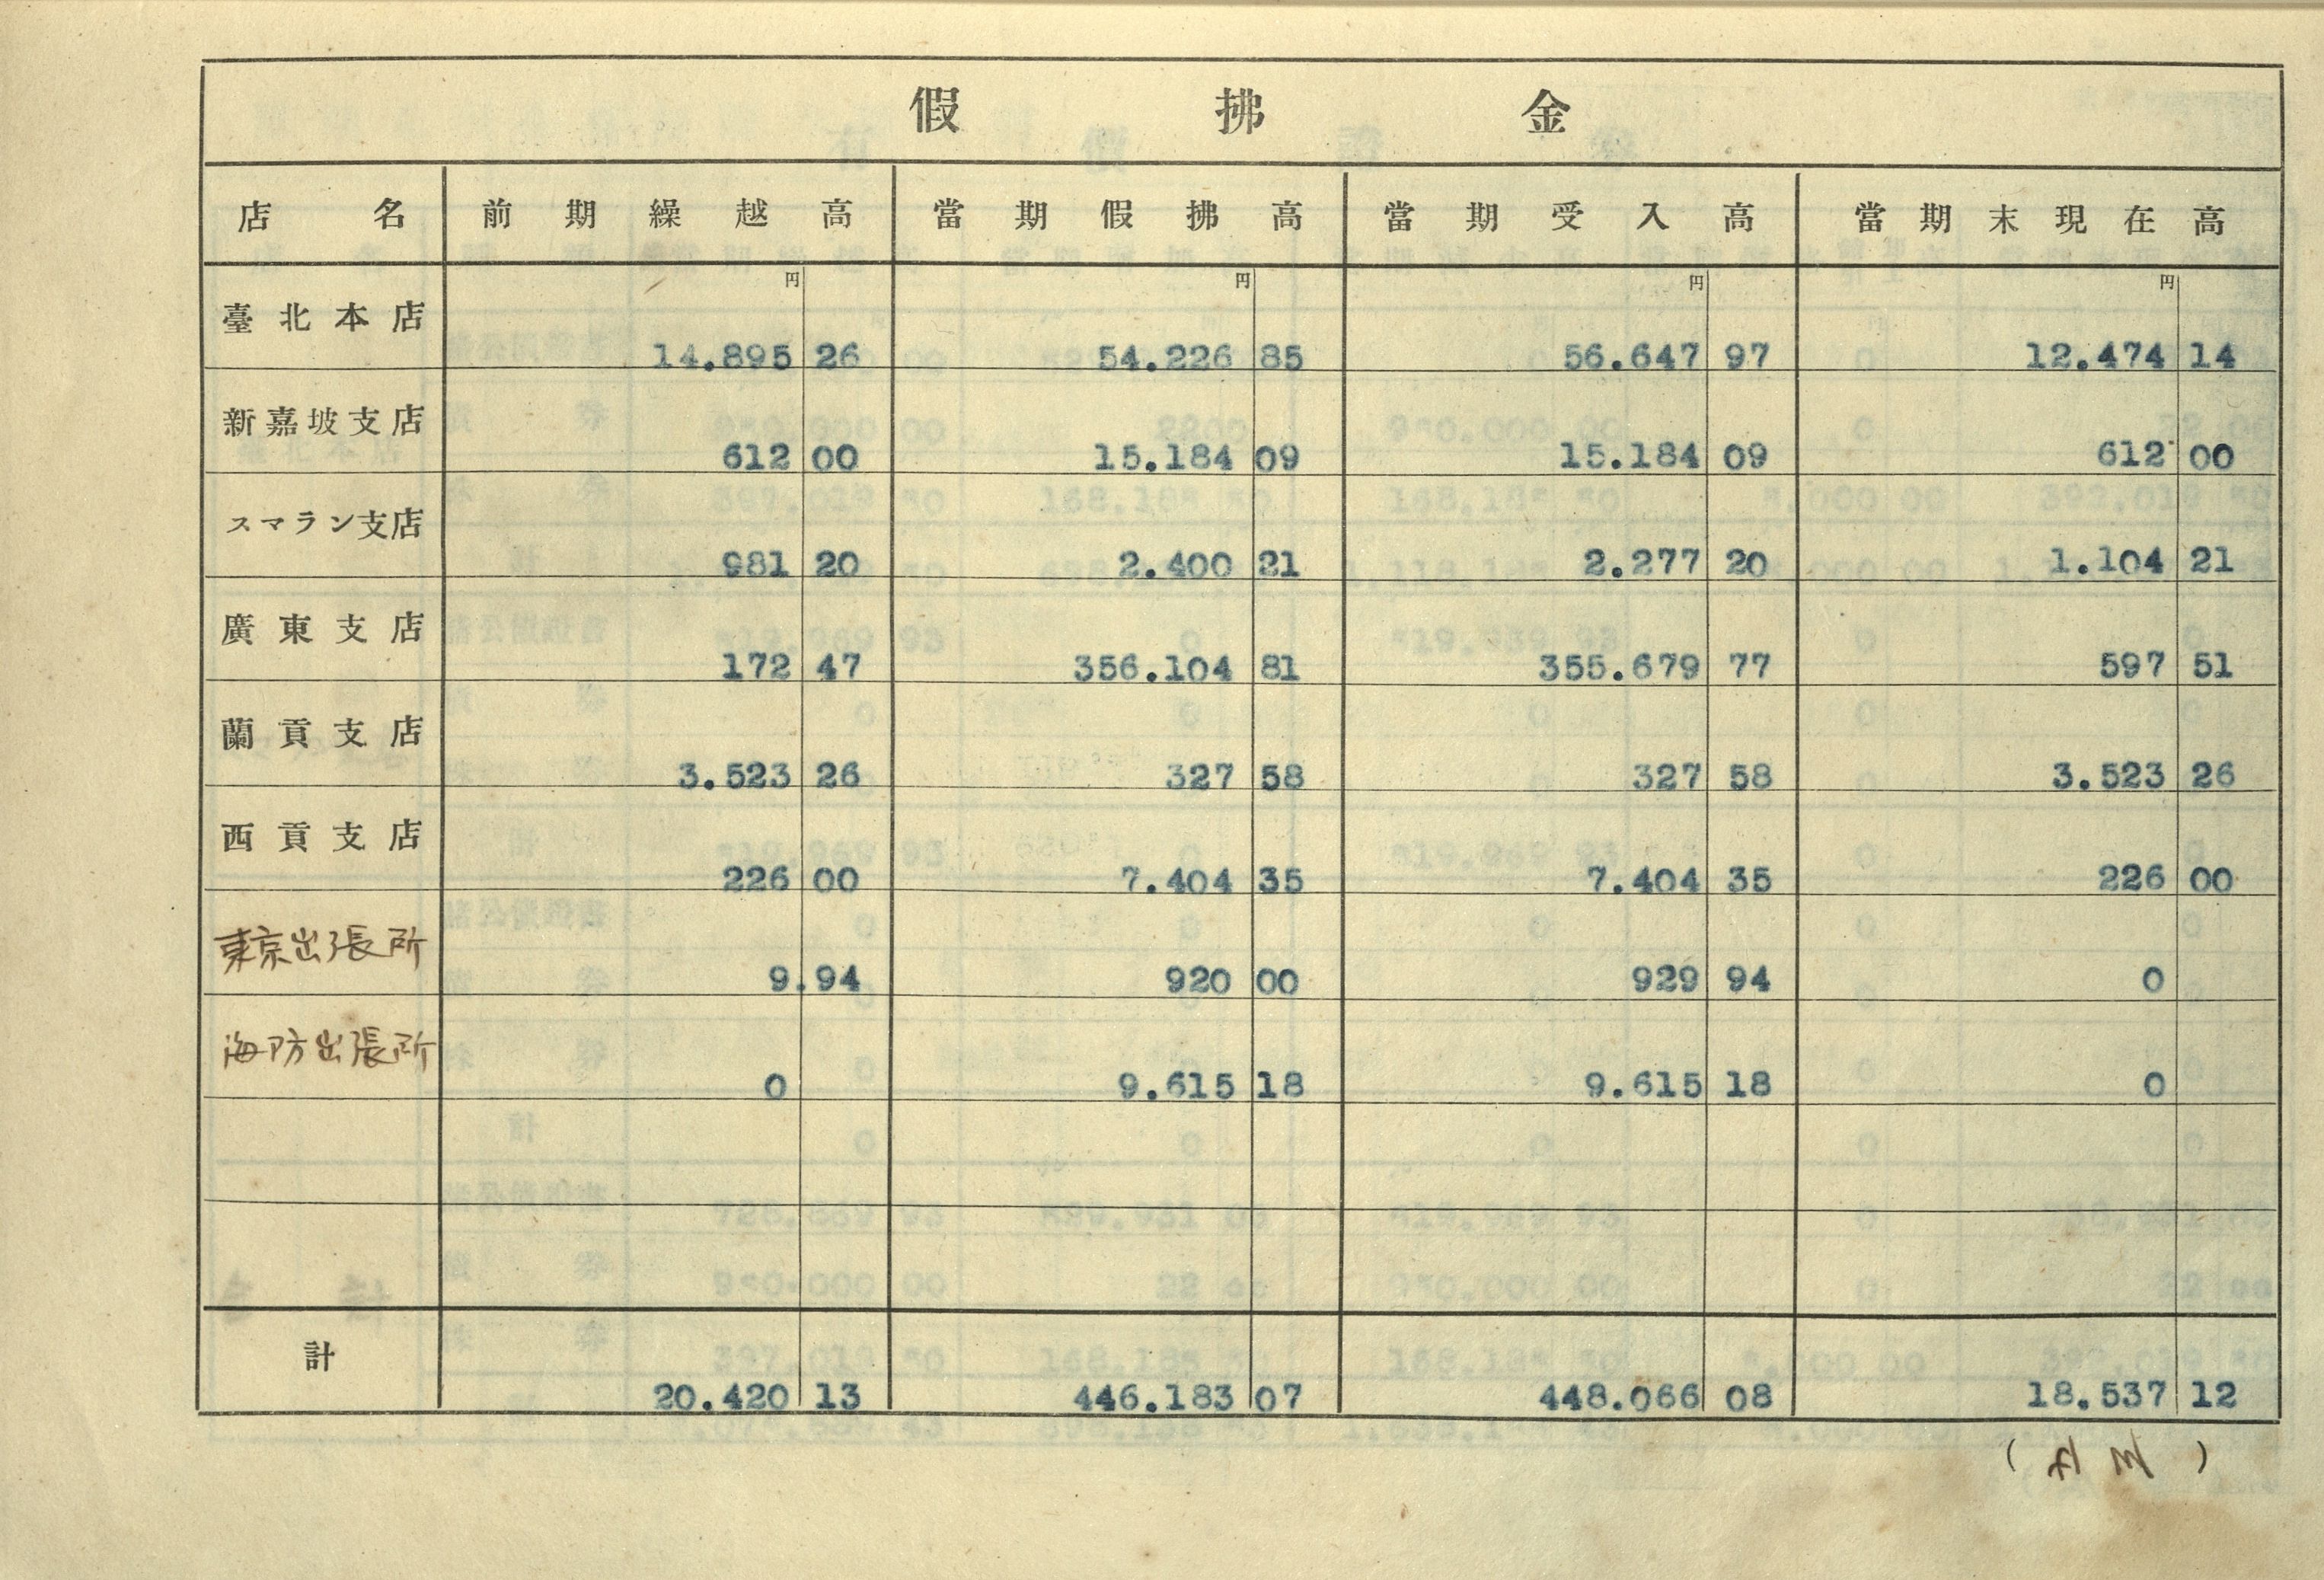 假拂金
店名 前期繰越高 當期假拂高 當期受入高 當期末現在高
円 円 円 円
臺北本店 14.895 26 54.226 85 56.647 97 12.474 14
新嘉坡支店 612 00 15.184 09 15.184 09 612 00
スマラン支店 981 20 2.400 21 2.277 20 1.104 21
廣東支店 172 47 356.104 81 355.679 77 597 51
蘭貢支店 3.523 26 327 58 327 58 3.523 26
西貢支店 226 00 7.404 35 7.404 35 226 00
東京出張所 9.94 920 00 929 94 0
海防出張所 0 9.615 18 9.615 18 0
計 20.420 13 446.183 07 448.066 08 18.537 12